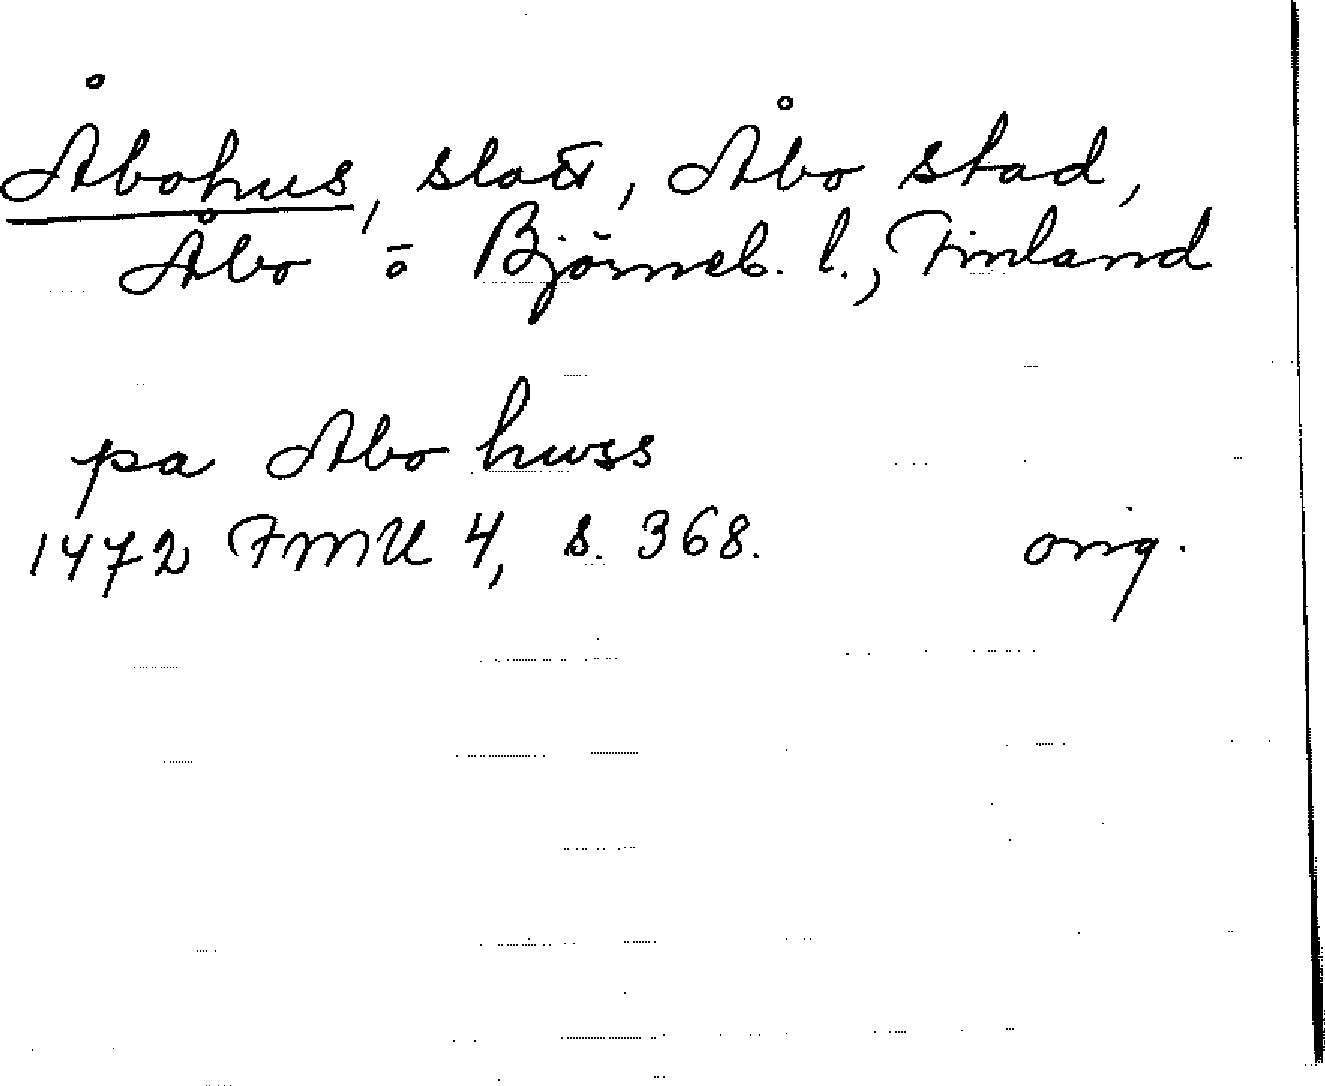 Åbohus, slott, Åbo stad,
Åbo o Björneb. l., Finland
pa Abo huss
1472 FMU 4, s. 368. orig.